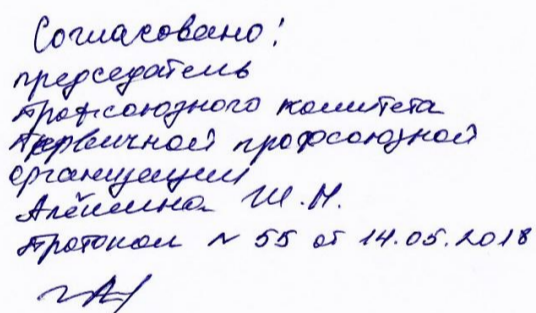 Согласовано!
председатель
профсоюзного комитета
первичной профсоюзной
организации
Алёшина Ш.М.
Протокол № 55 от 14.05.2018